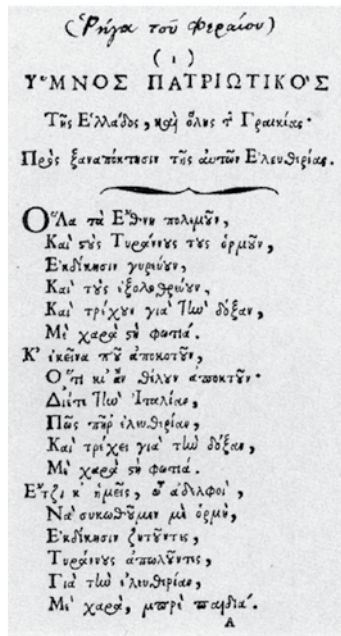 (Ῥήγα τοῦ Φεραίου)
(1)
ὝΜΝΟΣ ΠΑΤΡΙΩΤΙΚΟ'Σ
Τῆς Ἑλλάδος, καὶ ὅλης τ͂ Γραικίας·
Πρὸς ξαναπόκτησιν τῆς αὐτῶν Ἐλευθερίας.
Ὅλα τὰ Ἔθνη πολεμοῦν,
Καὶ στοὺς Τυράννους τους ὁρμοῦν,
Ἐκδίκησιν γυρεύουν,
Καὶ τοὺς ἐξολοθρεύουν,
Καὶ τρέχουν γιὰ τὴν δόξαν,
Μὲ χαρὰ στὴ φωτιά.
Κ' ἐκεῖνα ποῦ ἀποκοτοῦν,
Ὅ,τι κι' ἂν θέλουν ἀποκτοῦν·
Διέτι τὴν Ἰταλίαν,
Πῶς πῆρ' ἐλευθερίαν,
Καὶ τρέχει γιὰ τὴν δόξαν,
Μὲ χαρὰ στὴ φωτιά.
Ἔτζι κ' ἡμεῖς, ὦ ἀδελφοὶ,
Νὰ συκωθοῦμεν μὲ ὁρμὴ,
Ἐκδίκησιν ζητοῦντες,
Τυράννους ἀπολοῦντες,
Γιὰ τὴν ἐλευθερίαν,
Μὲ χαρὰ, μπρὲ παιδιά.
Α